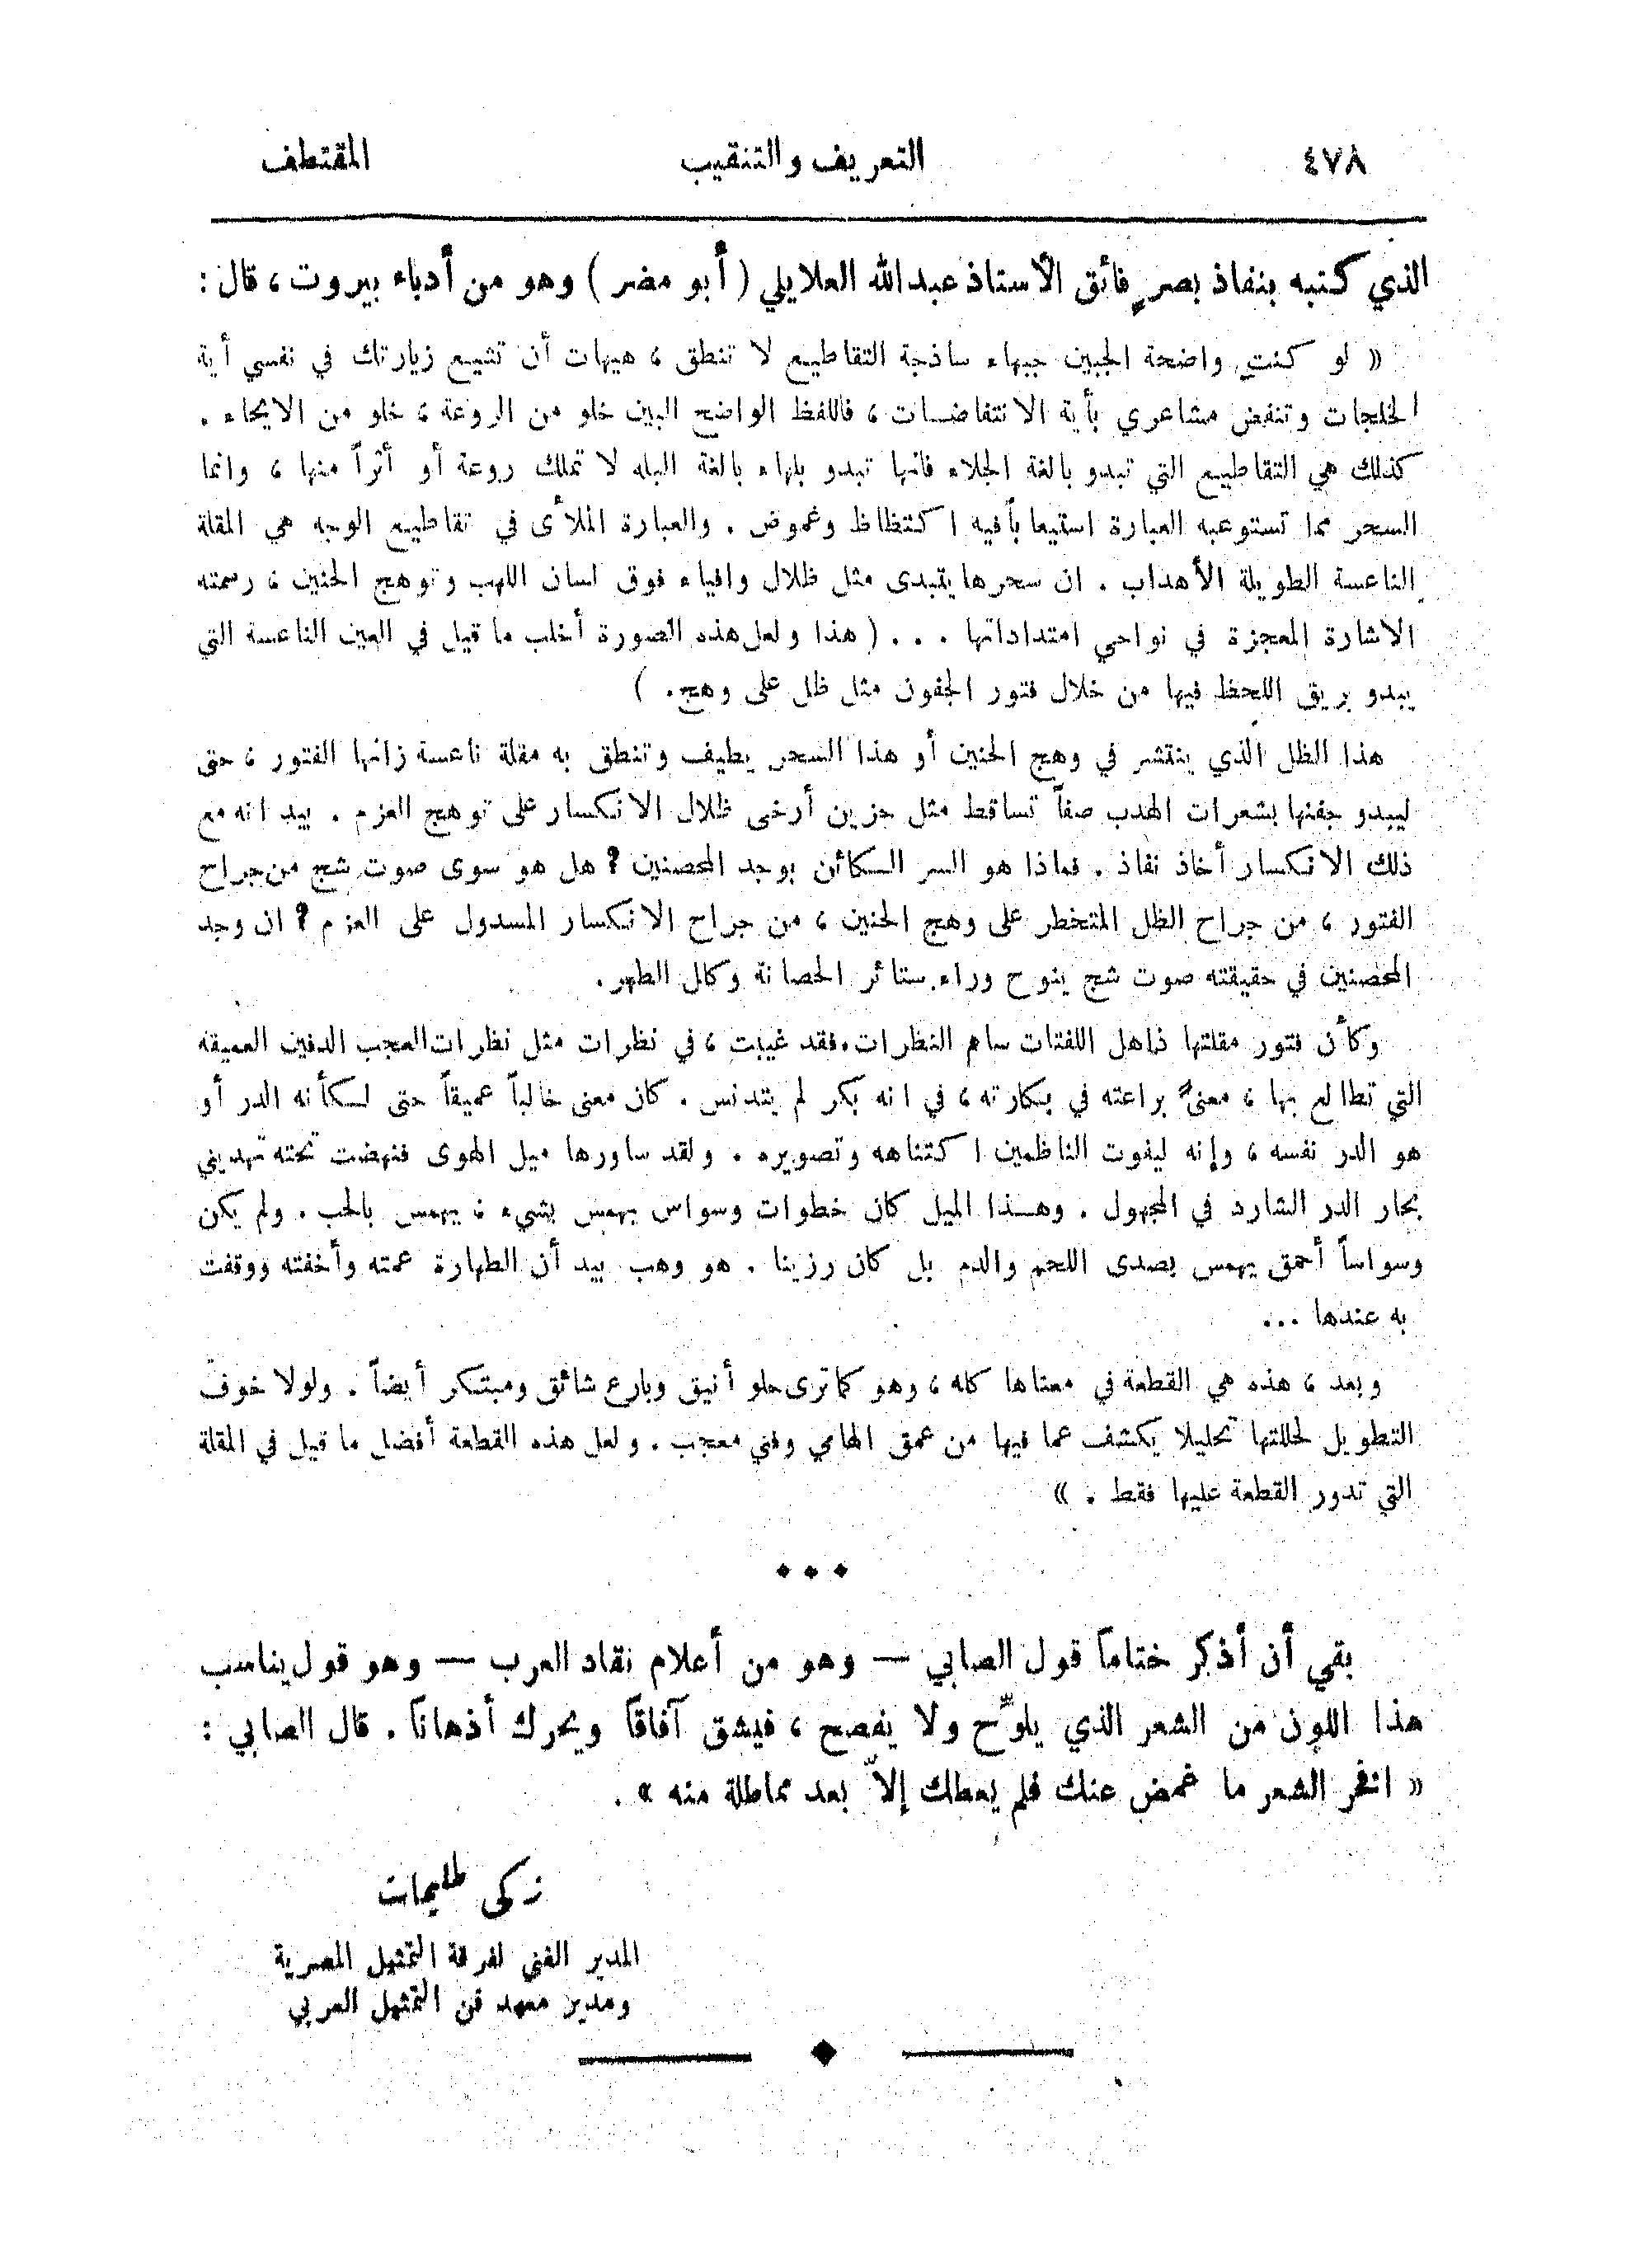 ٤٧٨ التعريف والتنقيب المقتطف
الذي كتبه بنفاذ بصرٍ فائق الأستاذ عبدالله العلايلي ( أبو مضر ) وهو من أدباء بيروت ، قال :
« لو كنتِ واضحة الجبين جبهاء ساذجة التقاطيع لا تنطق ، هيهات أن تشيع زيارتك في نفسي أية
الخلجات وتنفض مشاعري بأية الانتفاضات ، فاللفظ الواضح البين خلو من الروعة ، خلو من الايحاء .
كذلك هي التقاطيع التي تبدو بالغة الجلاء فانها تبدو بلهاء بالغة البله لا تملك روعة أو أثراً منها ، وانما
السحر مما تستوعبه العبارة استيعابأفيه اكتظاظ وغموض . والعبارة الملأى في تقاطيع الوجه هي المقلة
الناعسة الطويلة الأهداب . ان سحرها يتبدى مثل ظلال وافياء فوق لسان اللهب وتوهج الحنين ، رسمته
الاشارة المعجزة في نواحي امتداداتها . . . ( هذا ولعل هذه الصورة أخلب ما قيل في العين الناعسة التي
يبدو بريق اللحظ فيها من خلال فتور الجفون مثل ظل على وهج . )
هذا الظل الذي ينتشر في وهج الحنين أو هذا السحر يطيف وتنطق به مقلة ناعسة زانها الفتور ، حتى
ليبدو جفنها بشعرات الهدب صفاً تساقط مثل حزين أرخى ظلال الانكسار على توهج العزم . بيد انه مع
ذلك الانكسار أخاذ نفاذ . فماذا هو السر الكائن بوجد المحصنين ? هل هو سوى صوت شج من جراح
الفتور ، من جراح الظل المتخطر على وهج الحنين ، من جراح الانكسار المسدول على العزم ? ان وجد
المحصنين في حقيقته صوت شج ينوح وراء ستائر الحصانة وكمال الطهر .
وكأن فتور مقلتها ذاهل اللفتات ساهم النظرات . فقد غيبت ، في نظرات مثل نظرات العجب الدفين العميقه
التي تطالع بها ، معنىً براعته في بكارته ، في انه بكر لم يتدنس . كان معنى خالباً عميقاً حتى لكأنه الدر أو
هو الدر نفسه ، وإنه ليفوت الناظمين اكتناهه وتصويره . ولقد ساورها ميل الهوى فنهضت تحته تهديني
بحار الدر الشارد في المجهول . وهذا الميل كان خطوات وسواس يهمس بشيء ، يهمس بالحب . ولم يكن
وسواساً أحمق يهمس بصدى اللحم والدم بل كان رزينا . هو وهب بيد أن الطهارة عمته وأخفته ووقفت
به عندها ...
وبعد ، هذه هي القطعة في معناها كله ، وهو كما ترى حلو أنيق وبارع شائق ومبتكر أيضاً . ولولا خوف
التطويل لحللتها تحليلا يكشف عما فيها من عمق الهامي وفني معجب . ولعل هذه القطعة أفضل ما قيل في المقلة
التي تدور القطعة عليها فقط . »
بقي أن أذكر ختاماً قول الصابي — وهو من أعلام نقاد العرب — وهو قول يناسب
هذا اللون من الشعر الذي يلوِّح ولا يفصح ، فيشق آفاقاً ويحرك أذهاناً . قال الصابي :
« افخر الشعر ما غمض عنك فلم يعطك إلاّ بعد مماطلة منه » .
زكي طليمات
المدير الفني لفرقة التمثيل المصرية
ومدير معهد فن التمثيل العربي